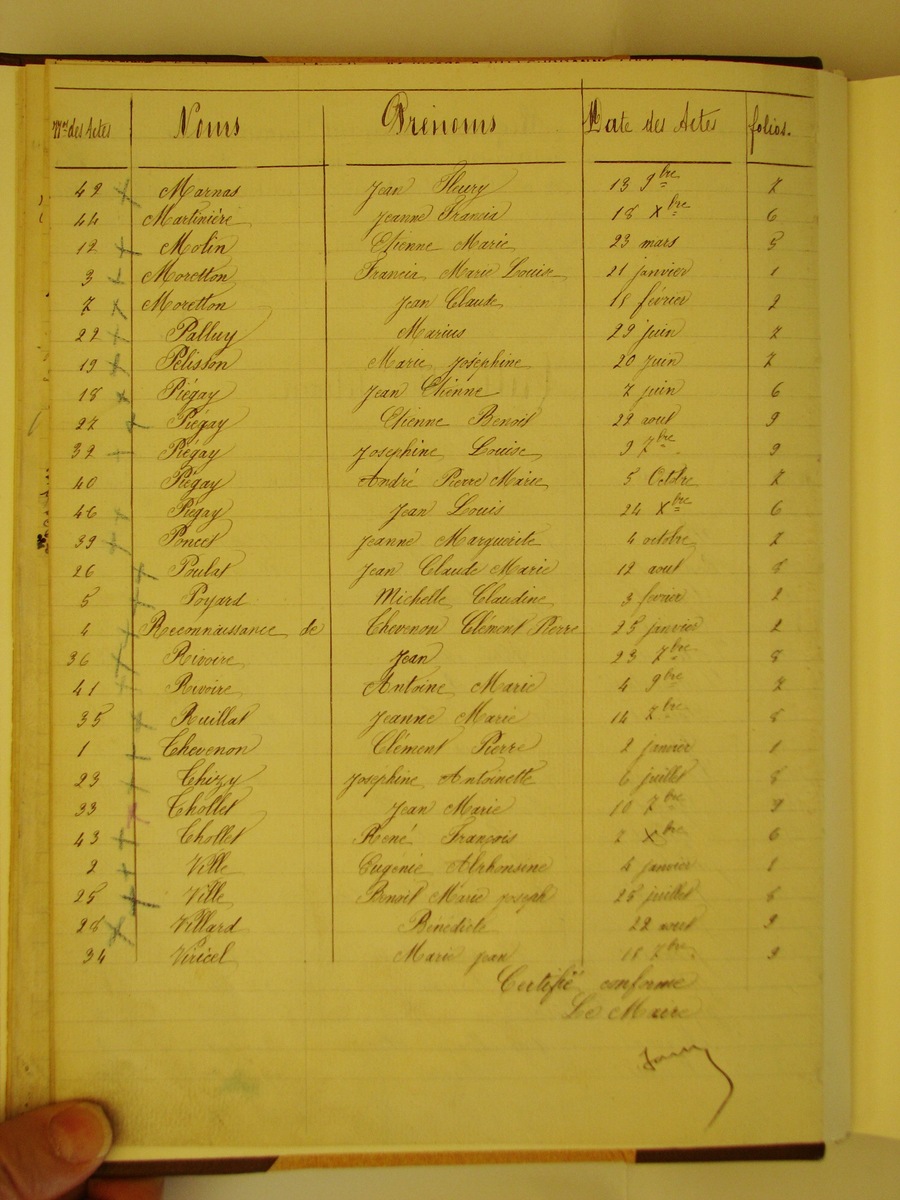 Nos des Actes Noms Prénoms Date des Actes folios.
42 Marnas Jean Fleury 13 9bre 7
44 Martinière Jeanne Francia 18 Xbre 6
12 Molin Etienne Marie 23 mars 5
3 Moretton Francia Marie Louise 21 janvier 1
7 Moretton Jean Claude 18 février 2
22 Palluy Marius 29 juin 7
19 Pélisson Marie Joséphine 20 Juin 7
18 Piégay Jean Etienne 7 juin 6
27 Piégay Etienne Benoit 22 aout 9
32 Piégay Josephine Louise 9 7bre 9
40 Piégay André Pierre Marie 5 Octbre 7
46 Piégay Jean Louis 24 Xbre 6
39 Poncet Jeanne Marguerite 4 octobre 7
26 Poulat Jean Claude Marie 12 aout 8
5 Poyard Michelle Claudine 3 fevrier 2
4 Reconnaissance de Chevenon Clément Pierre 25 janvier 2
36 Rivoire Jean 23 7bre 8
41 Rivoire Antoine Marie 4 9bre 7
35 Ruillat Jeanne Marie 14 7bre 8
1 Chevenon Clément Pierre 2 janvier 1
23 Thizy Joséphine Antoinette 6 juillet 8
33 Chollet Jean Marie 10 7bre 9
43 Chollet René François 2 Xbre 6
2 Ville Eugénie Alphonsine 4 janvier 1
25 Ville Benoit Marie joseph 25 juillet 8
28 Villard Bénédicte 22 aout 9
34 Viricel Marie jean 18 7bre 9
Certifié conforme
Le Maire